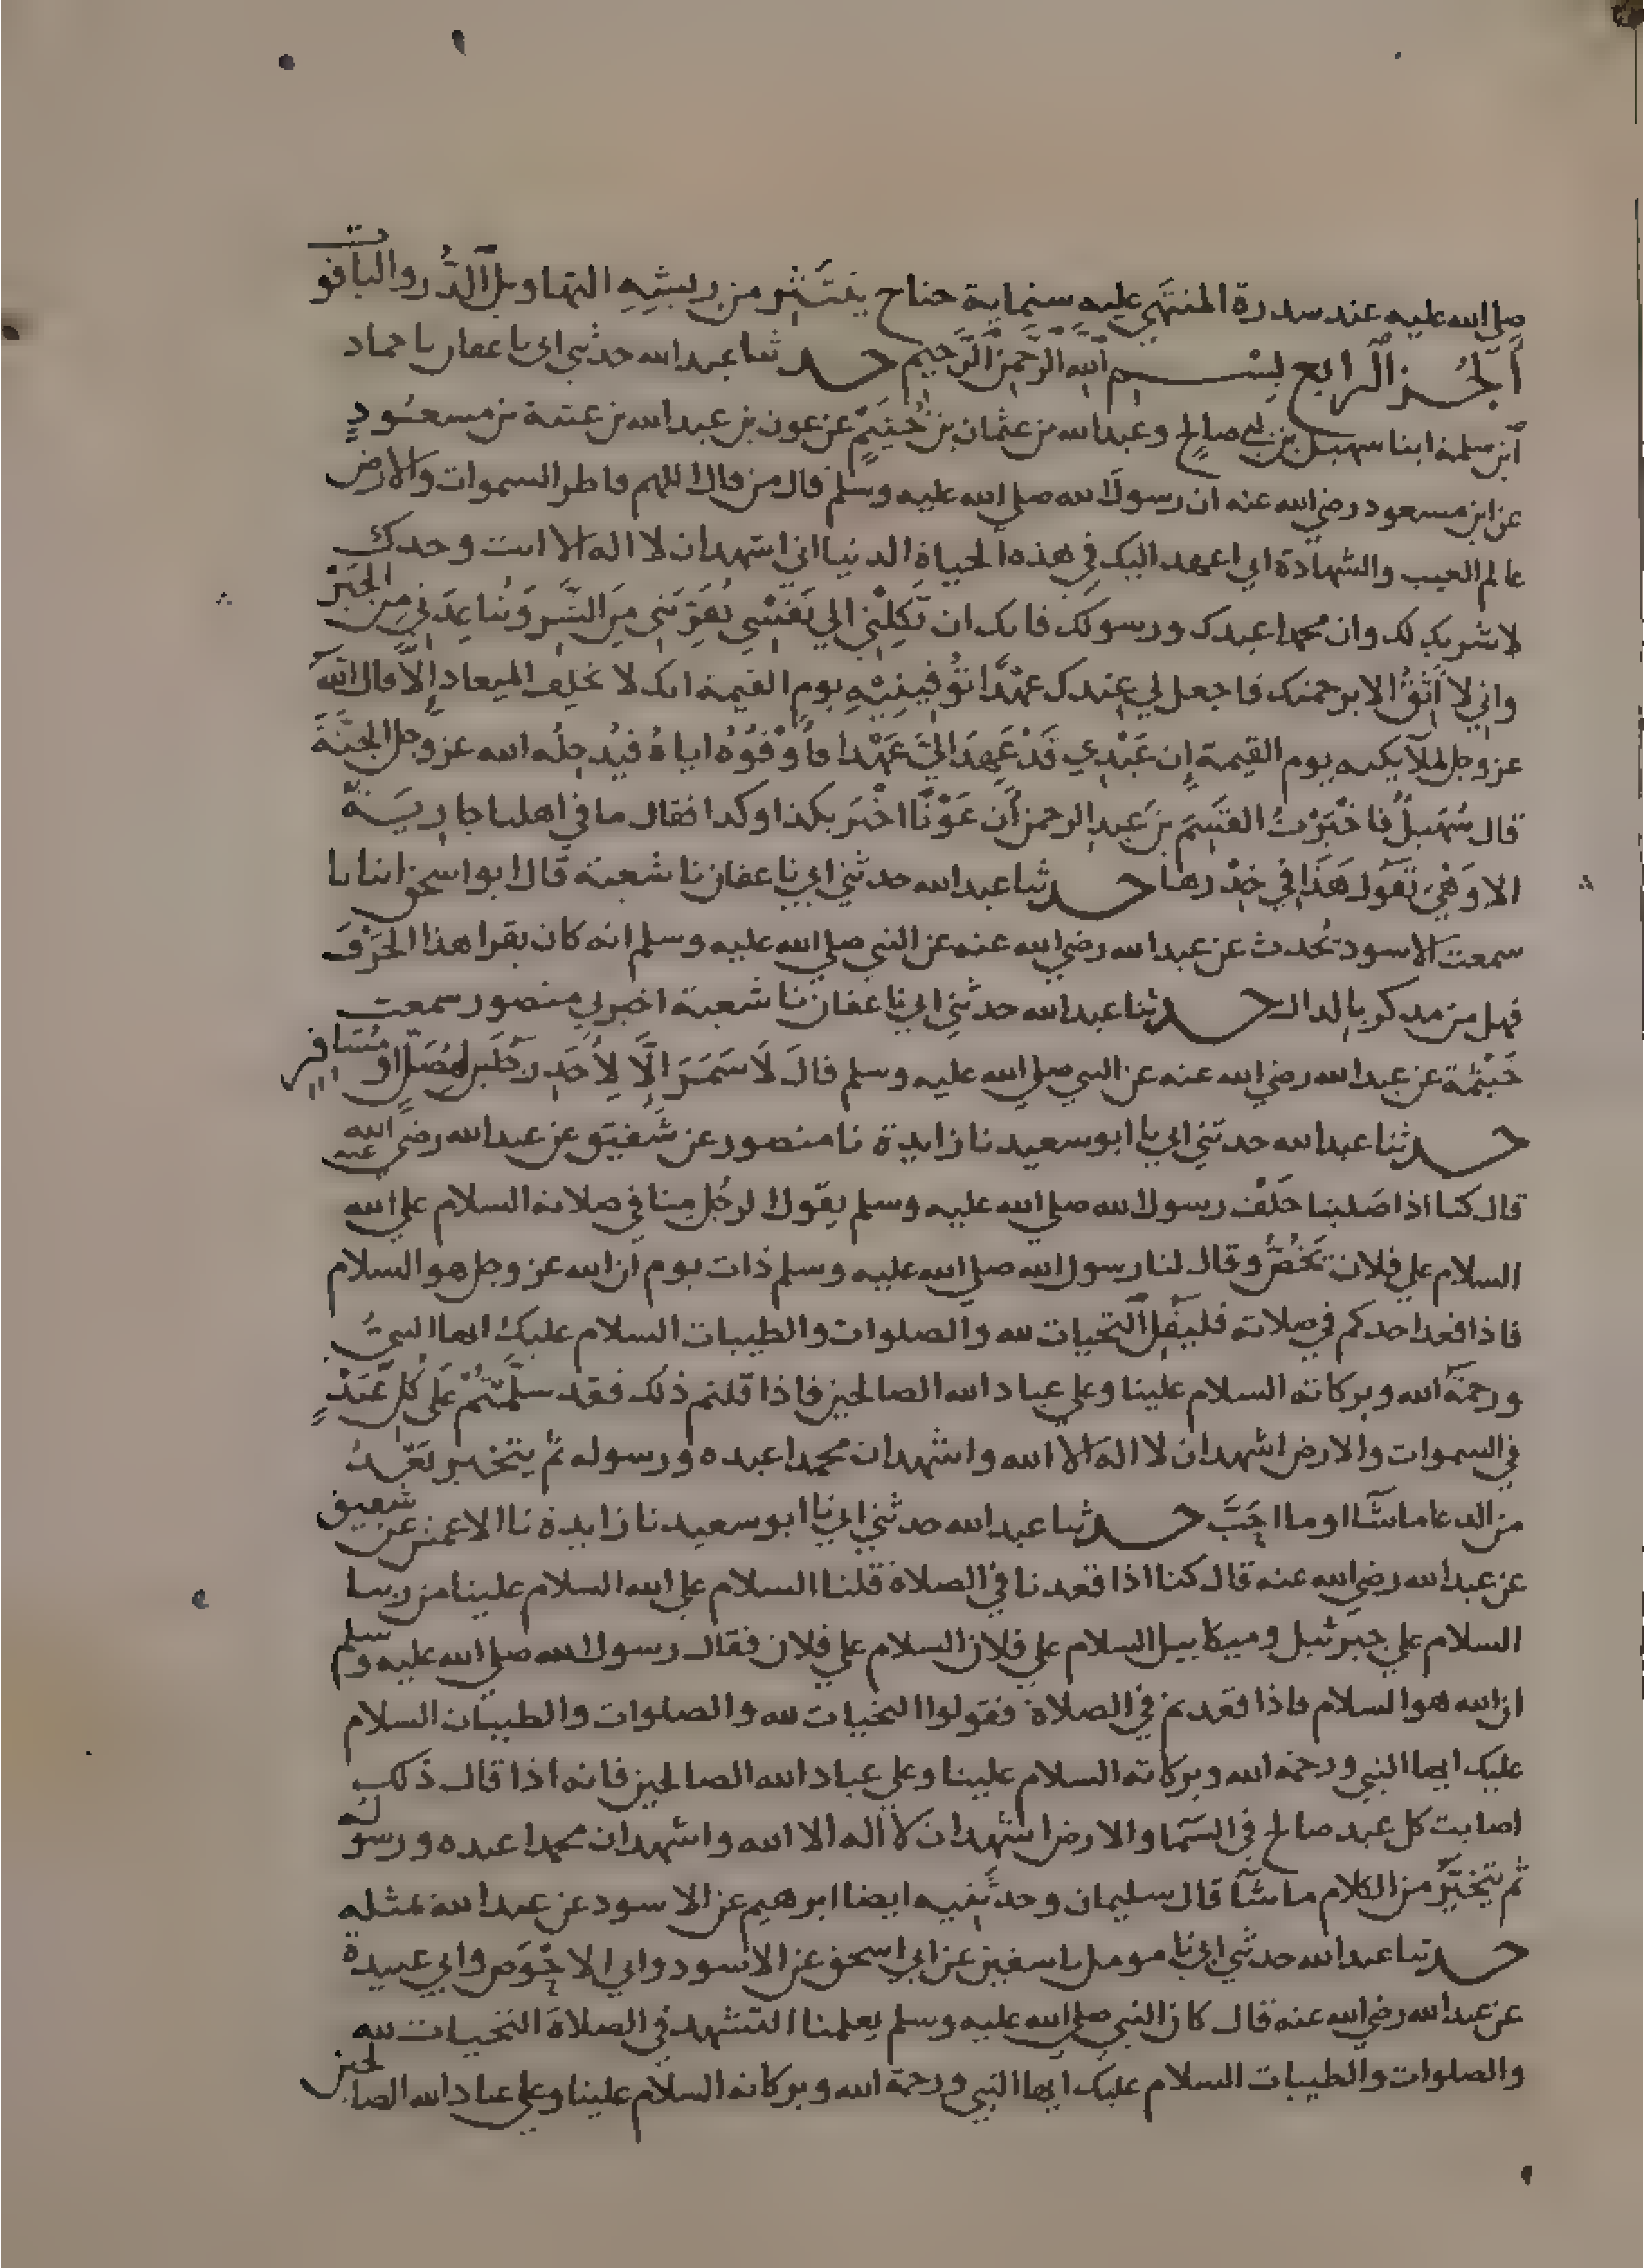 صلى الله عليه عند سدرة المنتهى عليه ستماية جناح ينتثر من ريشه التهاويل الدر والياقوت
الجزء الرابع بسم الله الرحمن الرحيم حدثنا عبد الله حدثني ابي نا عفان نا حماد
ابن سلمة انبا سهيل بن ابي صالح وعبد الله بن عثمان بن خثيم عن عون بن عبد الله بن عتبة بن مسعود
عن ابن مسعود رضي الله عنه ان رسول الله صلى الله عليه وسلم قال من قال اللهم فاطر السموات والارض
عالم الغيب والشهادة اني اعهد اليك في هذه الحياة الدنيا اني اشهد ان لا اله الا انت وحدك
لا شريك لك وان محمدا عبدك ورسولك فانك ان تكلني الي نفسي تقربني من الشر وتباعدني من الخير
واني لا اثق الا برحمتك فاجعل لي عندك عهدا توفينيه يوم القيمة انك لا تخلف الميعاد الا قال الله
عز وجل لملآيكته يوم القيمة ان عبدي قد عهد الي عهدا فاوفوه اياه فيدخله الله عز وجل الجنة
قال سهيل فاخبرت القسم بن عبد الرحمن ان عونا اخبر بكذا وكذا فقال ما في اهلنا جارية
الا وهي تقول هذا في خدرها حدثنا عبد الله حدثني ابي نا عفان نا شعبة قال ابو اسحق انبانا
سمعت الاسود يحدث عن عبد الله رضي الله عنه عن النبي صلى الله عليه وسلم انه كان يقرا هذا الحرف
فهل من مدكر بالدال حدثنا عبد الله حدثني ابي نا عفان نا شعبة اخبرني منصور سمعت
خيثمة عن عبد الله رضي الله عنه عن النبي صلى الله عليه وسلم قال لا سمر الا لاحد رجلين لمصل او مسافر
حدثنا عبد الله حدثني ابي نا ابو سعيد نا زايدة نا منصور عن شقيق عن عبد الله رضي الله عنه
قال كنا اذا صلينا خلف رسول الله صلى الله عليه وسلم يقول الرجل منا في صلاته السلام على الله
السلام على فلان يخص وقال لنا رسول الله صلى الله عليه وسلم ذات يوم ان الله عز وجل هو السلام
فاذا قعد احدكم في صلاته فليقل التحيات لله والصلوات والطيبات السلام عليك ايها النبي
ورحمة الله وبركاته السلام علينا وعلى عباد الله الصالحين فاذا قلتم ذلك فقد سلمتم على كل عبد
في السموات والارض اشهد ان لا اله الا الله واشهد ان محمدا عبده ورسوله ثم يتخير بعد
من الدعا ما شا او ما احب حدثنا عبد الله حدثني ابي نا ابو سعيد نا زايدة نا الاعمش عن شقيق
عن عبد الله رضي الله عنه قال كنا اذا قعدنا في الصلاة قلنا السلام على الله السلام علينا من ربنا
السلام على جبرئيل وميكاييل السلام على فلان السلام على فلان فقال رسول الله صلى الله عليه وسلم
ان الله هو السلام فاذا قعدتم في الصلاة فقولوا التحيات لله والصلوات والطيبات السلام
عليك ايها النبي ورحمة الله وبركاته السلام علينا وعلى عباد الله الصالحين فانه اذا قال ذلك
اصابت كل عبد صالح في السما والارض اشهد ان لا اله الا الله واشهد ان محمدا عبده ورسوله
ثم يتخير من الكلام ما شا قال سليمان وحدثنيه ايضا ابرهيم عن الاسود عن عبد الله مثله
حدثنا عبد الله حدثني ابي نا مومل نا سفين عن ابي اسحق عن الاسود وابي الاحوص وابي عبيدة
عن عبد الله رضي الله عنه قال كان النبي صلى الله عليه وسلم يعلمنا التشهد في الصلاة التحيات لله
والصلوات والطيبات السلام عليك ايها النبي ورحمة الله وبركاته السلام علينا وعلى عباد الله الصالحين